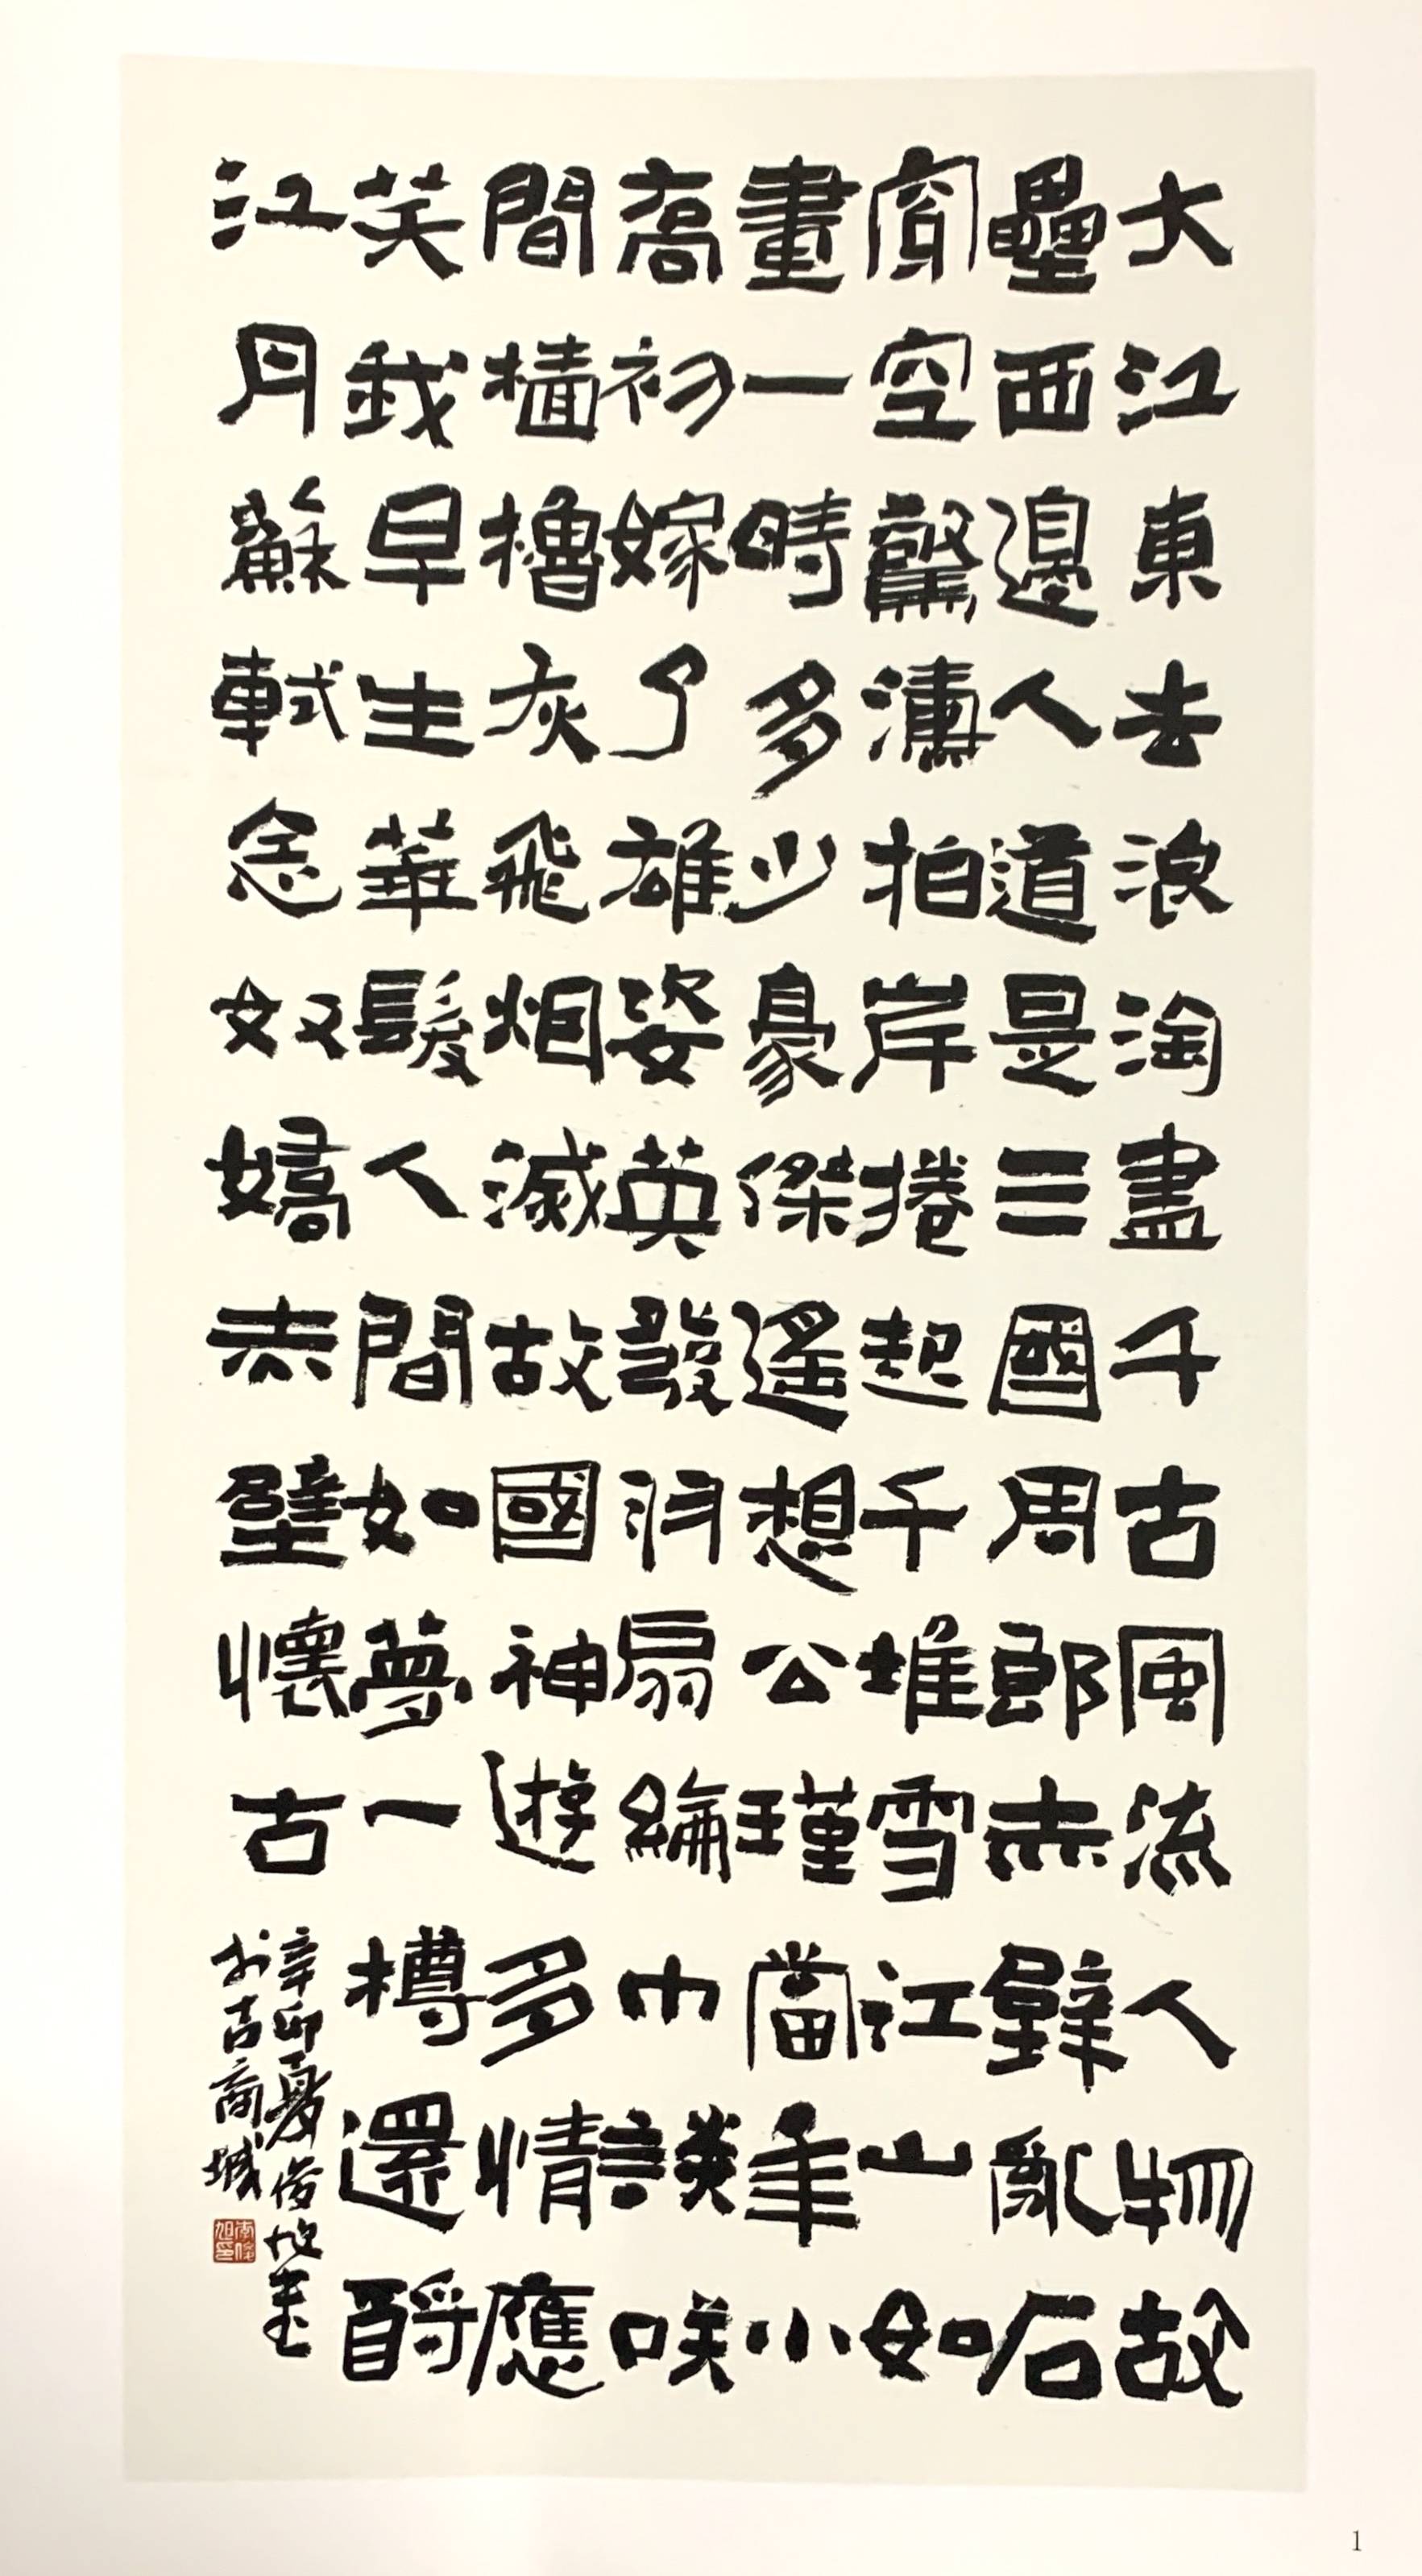 大江東去浪淘盡千古風流人物故
壘西邊人道是三國周郎赤壁亂石
穿空驚濤拍岸捲起千堆雪江山如
畫一時多少豪傑遙想公瑾當年小
喬初嫁了雄姿英發羽扇綸巾談咲
間檣櫓灰飛烟滅故國神遊多情應
笑我早生華髮人間如夢一樽還酹
江月蘇軾念奴嬌赤壁懷古
辛卯夏俊旭書
於古商城
1